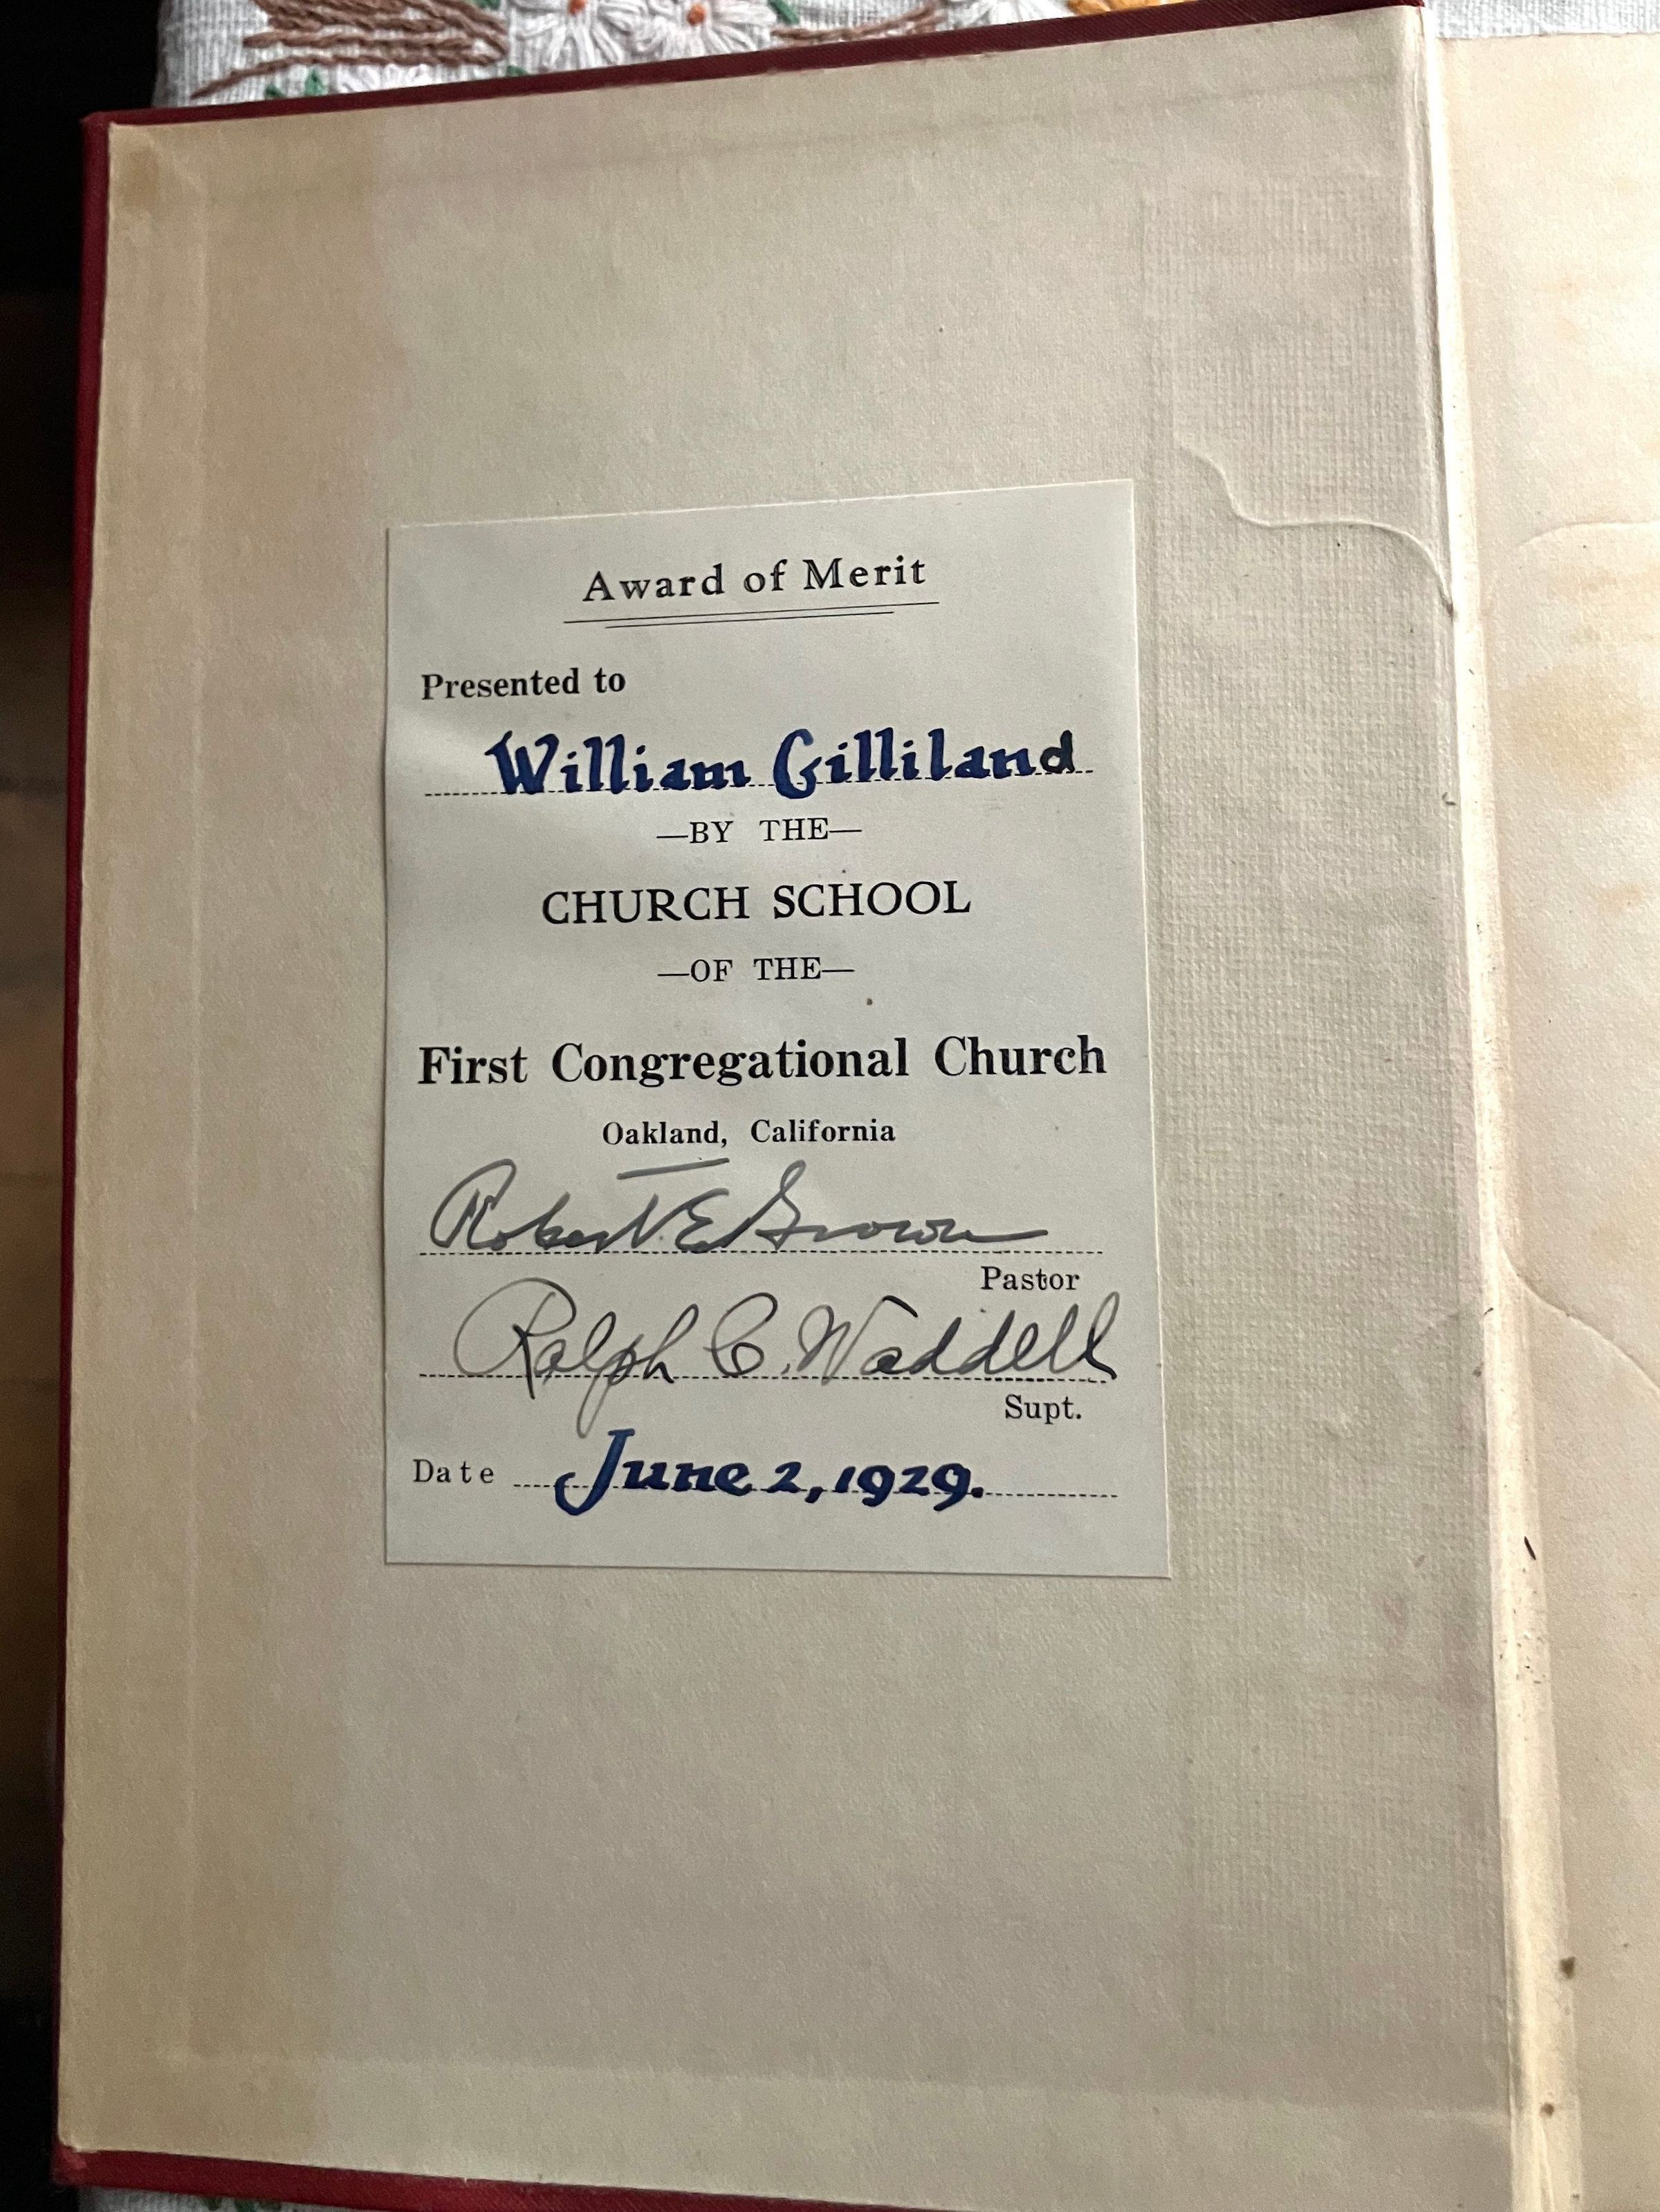 Award of Merit
Presented to
William Gilliland
—BY THE—
CHURCH SCHOOL
—OF THE—
First Congregational Church
Oakland, California
Robert E Brown
Pastor
Ralph C. Waddell
Supt.
Date June 2, 1929.